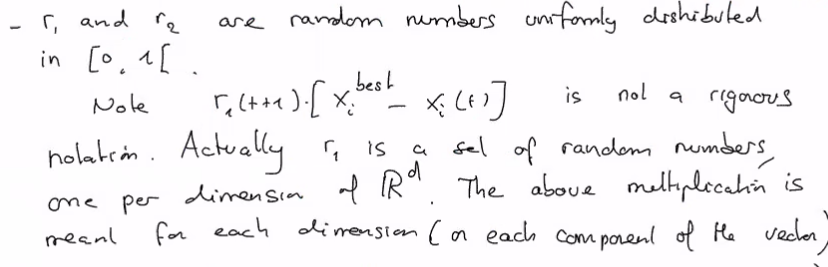 - r₁ and r₂ are random numbers uniformly distributed
in [0, 1[ .
Note r₁(t+1)·[xᵢᵇᵉˢᵗ - xᵢ(t)] is not a rigorous
notation. Actually r₁ is a set of random numbers,
one per dimension of ℝᵈ. The above multiplication is
meant for each dimension (or each component of the vector)